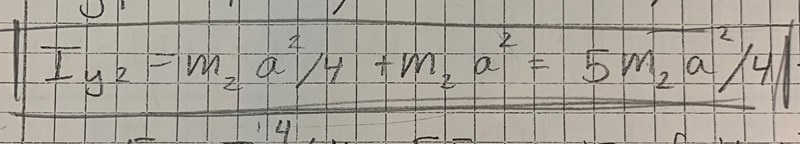 I_{y2} = m_2 a^2/4 + m_2 a^2 = 5 m_2 a^2/4